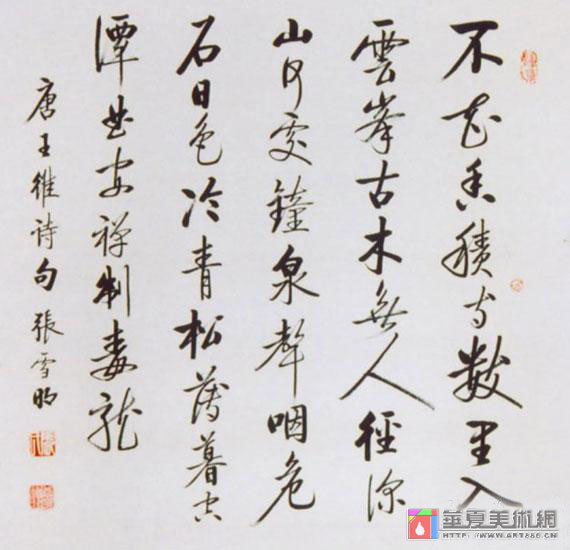 不知香積寺数里入
雲峯古木無人徑深
山何處鐘泉聲咽危
石日色冷青松薄暮空
潭曲安禪制毒龍
唐王維詩句張雪明
華夏美術網
HTTP://WWW.ART886.CN